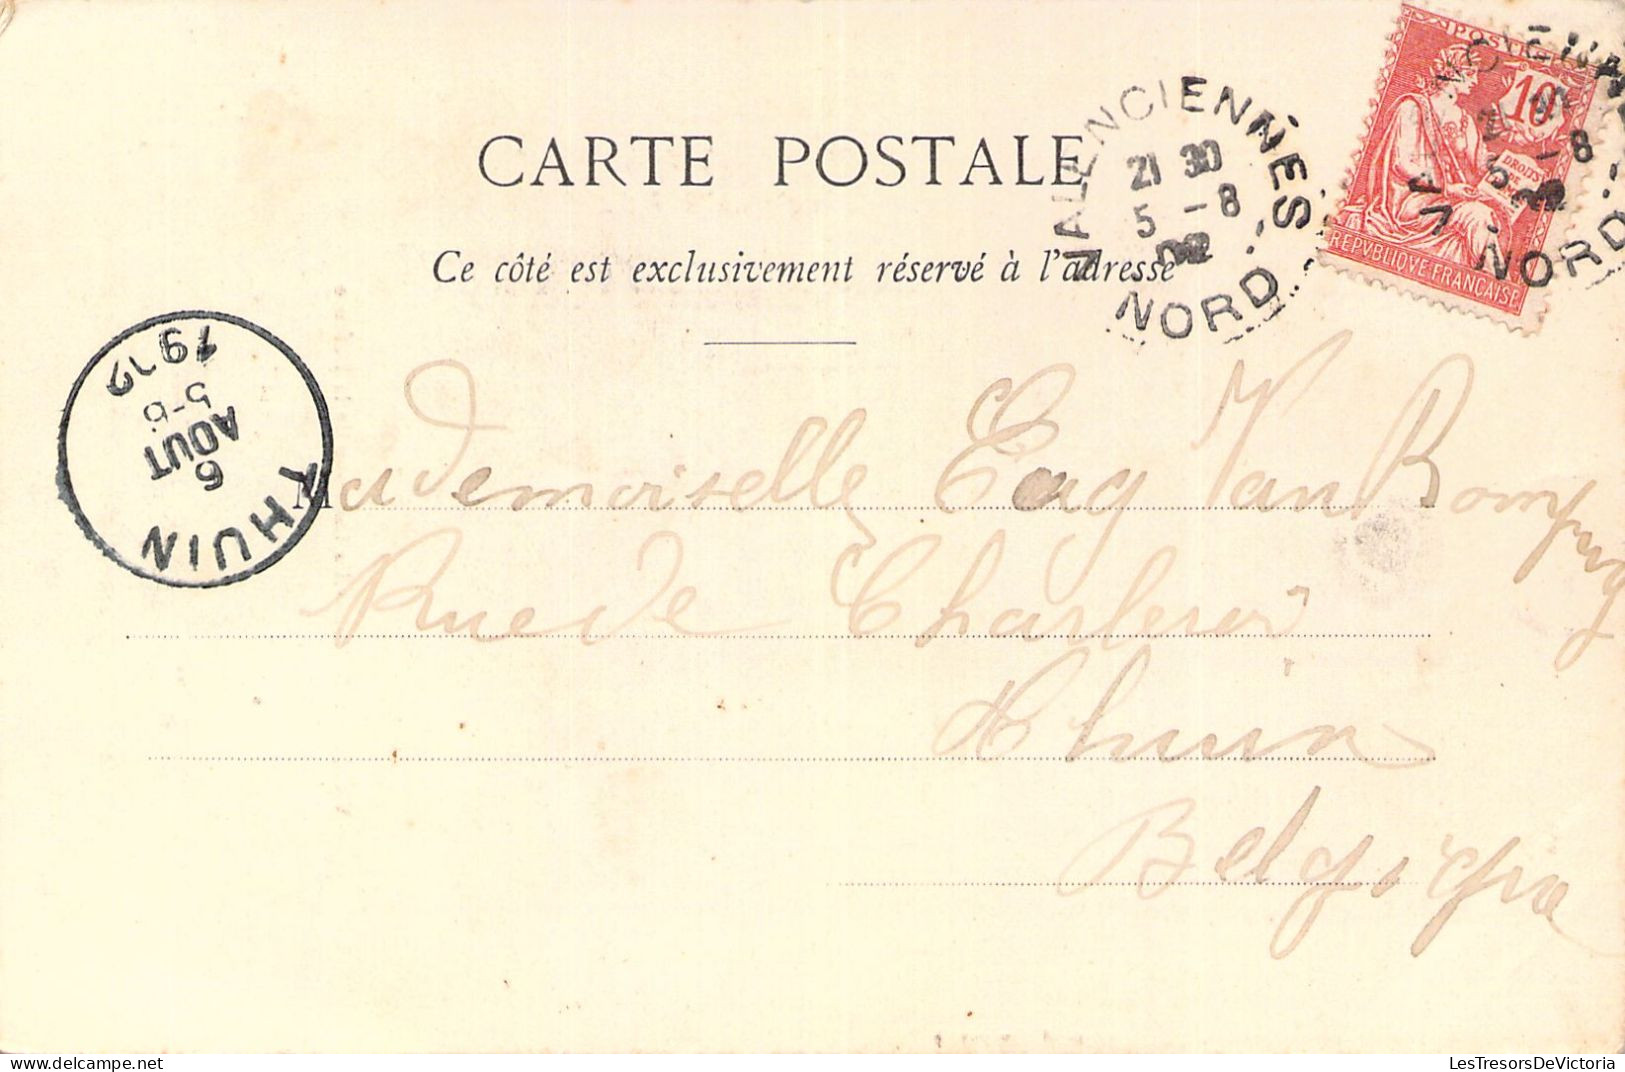 CARTE POSTALE
Ce côté est exclusivement réservé à l'adresse
VALENCIENNES
21 30
5 -8
02
NORD
POSTES
10
DROITS
DE
REPVBLIQVE FRANÇAISE
VALENCIENNES
5 -8
NORD
THUIN
6
AOUT
5-6
1902
Mademoiselle Van Rompuy
Rue de Charleroi
Thuin
Belgique
LesTresorsDeVictoria